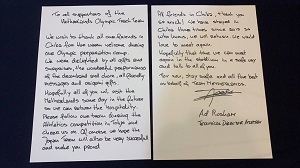 To all supporters of the
Netherlands Olympic Track Team
We wish to thank all our friends in
China for the warm welcome during
our Olympic preparation camp.
We were delighted by all gifts and
the wonderful performances
of the and choir, all friendly
messages and gifts.
Hopefully all of you will visit the
Netherlands some day in the future
so we can return the hospitality.
Please follow our team during the
Athletics competition in Tokyo and
cheer us on. Of course we hope the
Japan Team will also be very successful
and make you proud.
All friends in China, thank you
so much! We have stayed in
China three times since 2019 so
who knows, we will return. We would
love to meet again.
Hopefully that time we can meet
again in the stadium in a safe way
and talk to all of you.
For now, stay safe and all the best
on behalf of Team Netherlands.
Ad Roskam
Technical Director Athletics